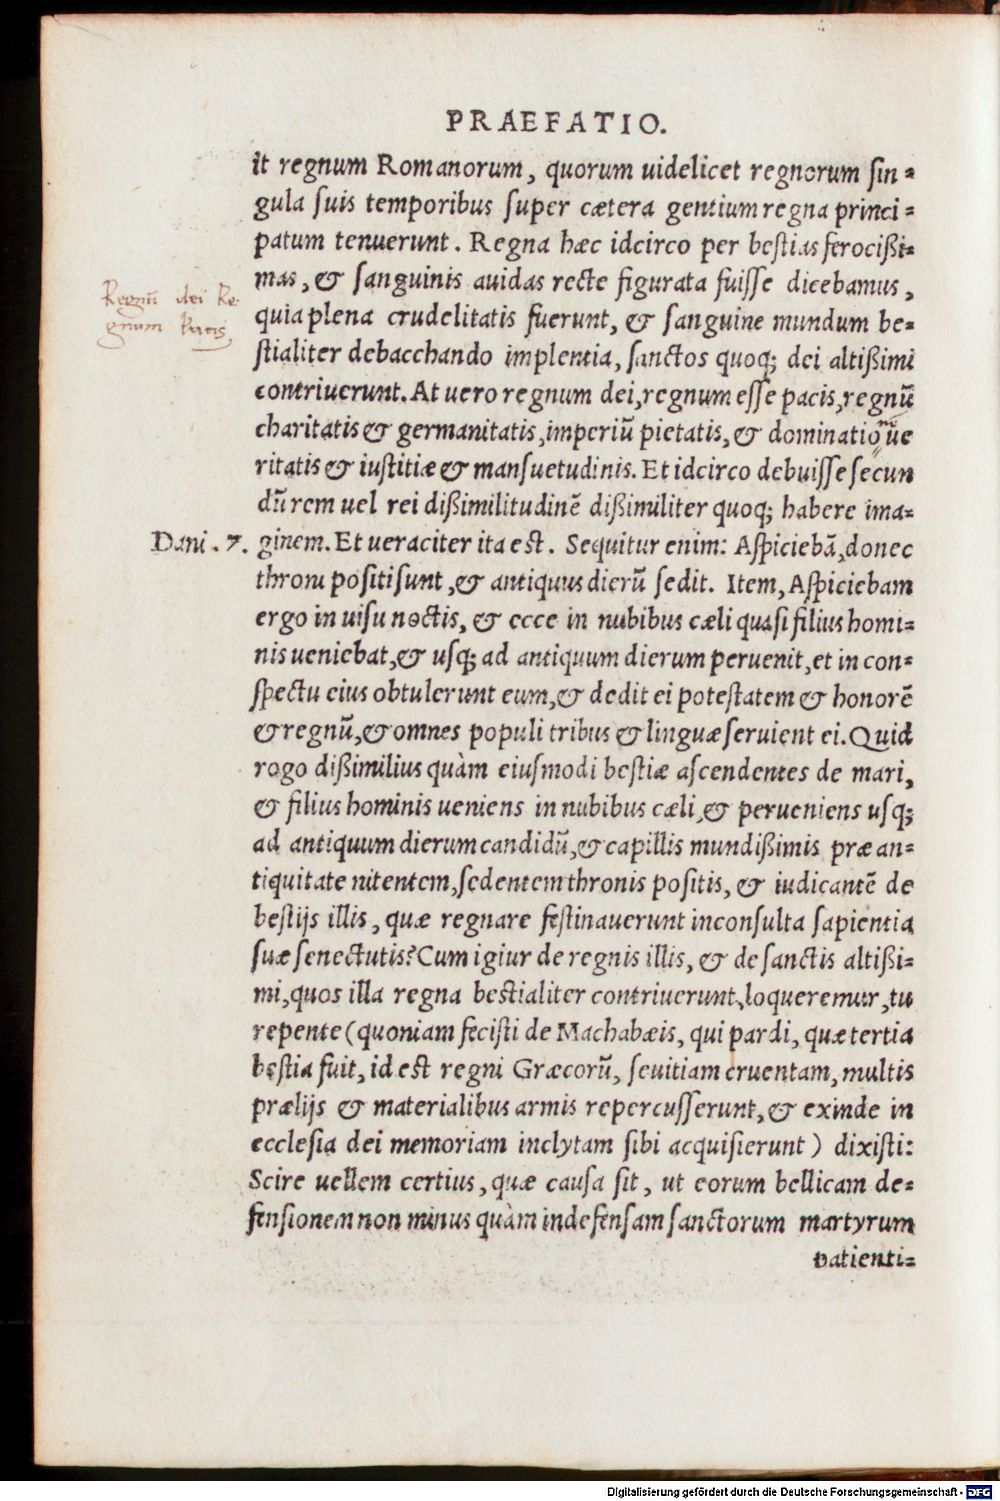 PRAEFATIO.
it regnum Romanorum, quorum uidelicet regnorum sin-
gula suis temporibus super cætera gentium regna princi-
patum tenuerunt. Regna hæc idcirco per bestias ferocißi-
mas, & sanguinis auidas recte figurata fuisse dicebamus,
quia plena crudelitatis fuerunt, & sanguine mundum be-
stialiter debacchando implentia, sanctos quoq; dei altißimi
contriuerunt. At uero regnum dei, regnum esse pacis, regnū
charitatis & germanitatis, imperiū pietatis, & dominationē ue
ritatis & iustitiæ & mansuetudinis. Et idcirco debuisse secun
dū rem uel rei dißimilitudinē dißimiliter quoq; habere ima-
ginem. Et ueraciter ita est. Sequitur enim: Aspiciebā, donec
throni positi sunt, & antiquus dierū sedit. Item, Aspiciebam
ergo in uisu noctis, & ecce in nubibus cæli quasi filius homi-
nis ueniebat, & usq; ad antiquum dierum peruenit, et in con-
spectu eius obtulerunt eum, & dedit ei potestatem & honorē
& regnū, & omnes populi tribus & linguæ seruient ei. Quid
rogo dißimilius quàm eiusmodi bestiæ ascendentes de mari,
& filius hominis ueniens in nubibus cæli, & perueniens usq;
ad antiquum dierum candidū, & capillis mundißimis præ an-
tiquitate nitentem, sedentem thronis positis, & iudicantē de
bestijs illis, quæ regnare festinauerunt inconsulta sapientia
suæ senectutis? Cum igiur de regnis illis, & de sanctis altißi-
mi, quos illa regna bestialiter contriuerunt, loqueremur, tu
repente (quoniam fecisti de Machabæis, qui pardi, quæ tertia
bestia fuit, id est regni Græcorū, seuitiam cruentam, multis
prælijs & materialibus armis repercusserunt, & exinde in
ecclesia dei memoriam inclytam sibi acquisierunt) dixisti:
Scire uellem certius, quæ causa sit, ut eorum bellicam de-
fensionem non minus quàm indefensam sanctorum martyrum
patienti-
Dani. 7.
Regnū dei Re
gnum Pacis
Digitalisierung gefördert durch die Deutsche Forschungsgemeinschaft - DFG